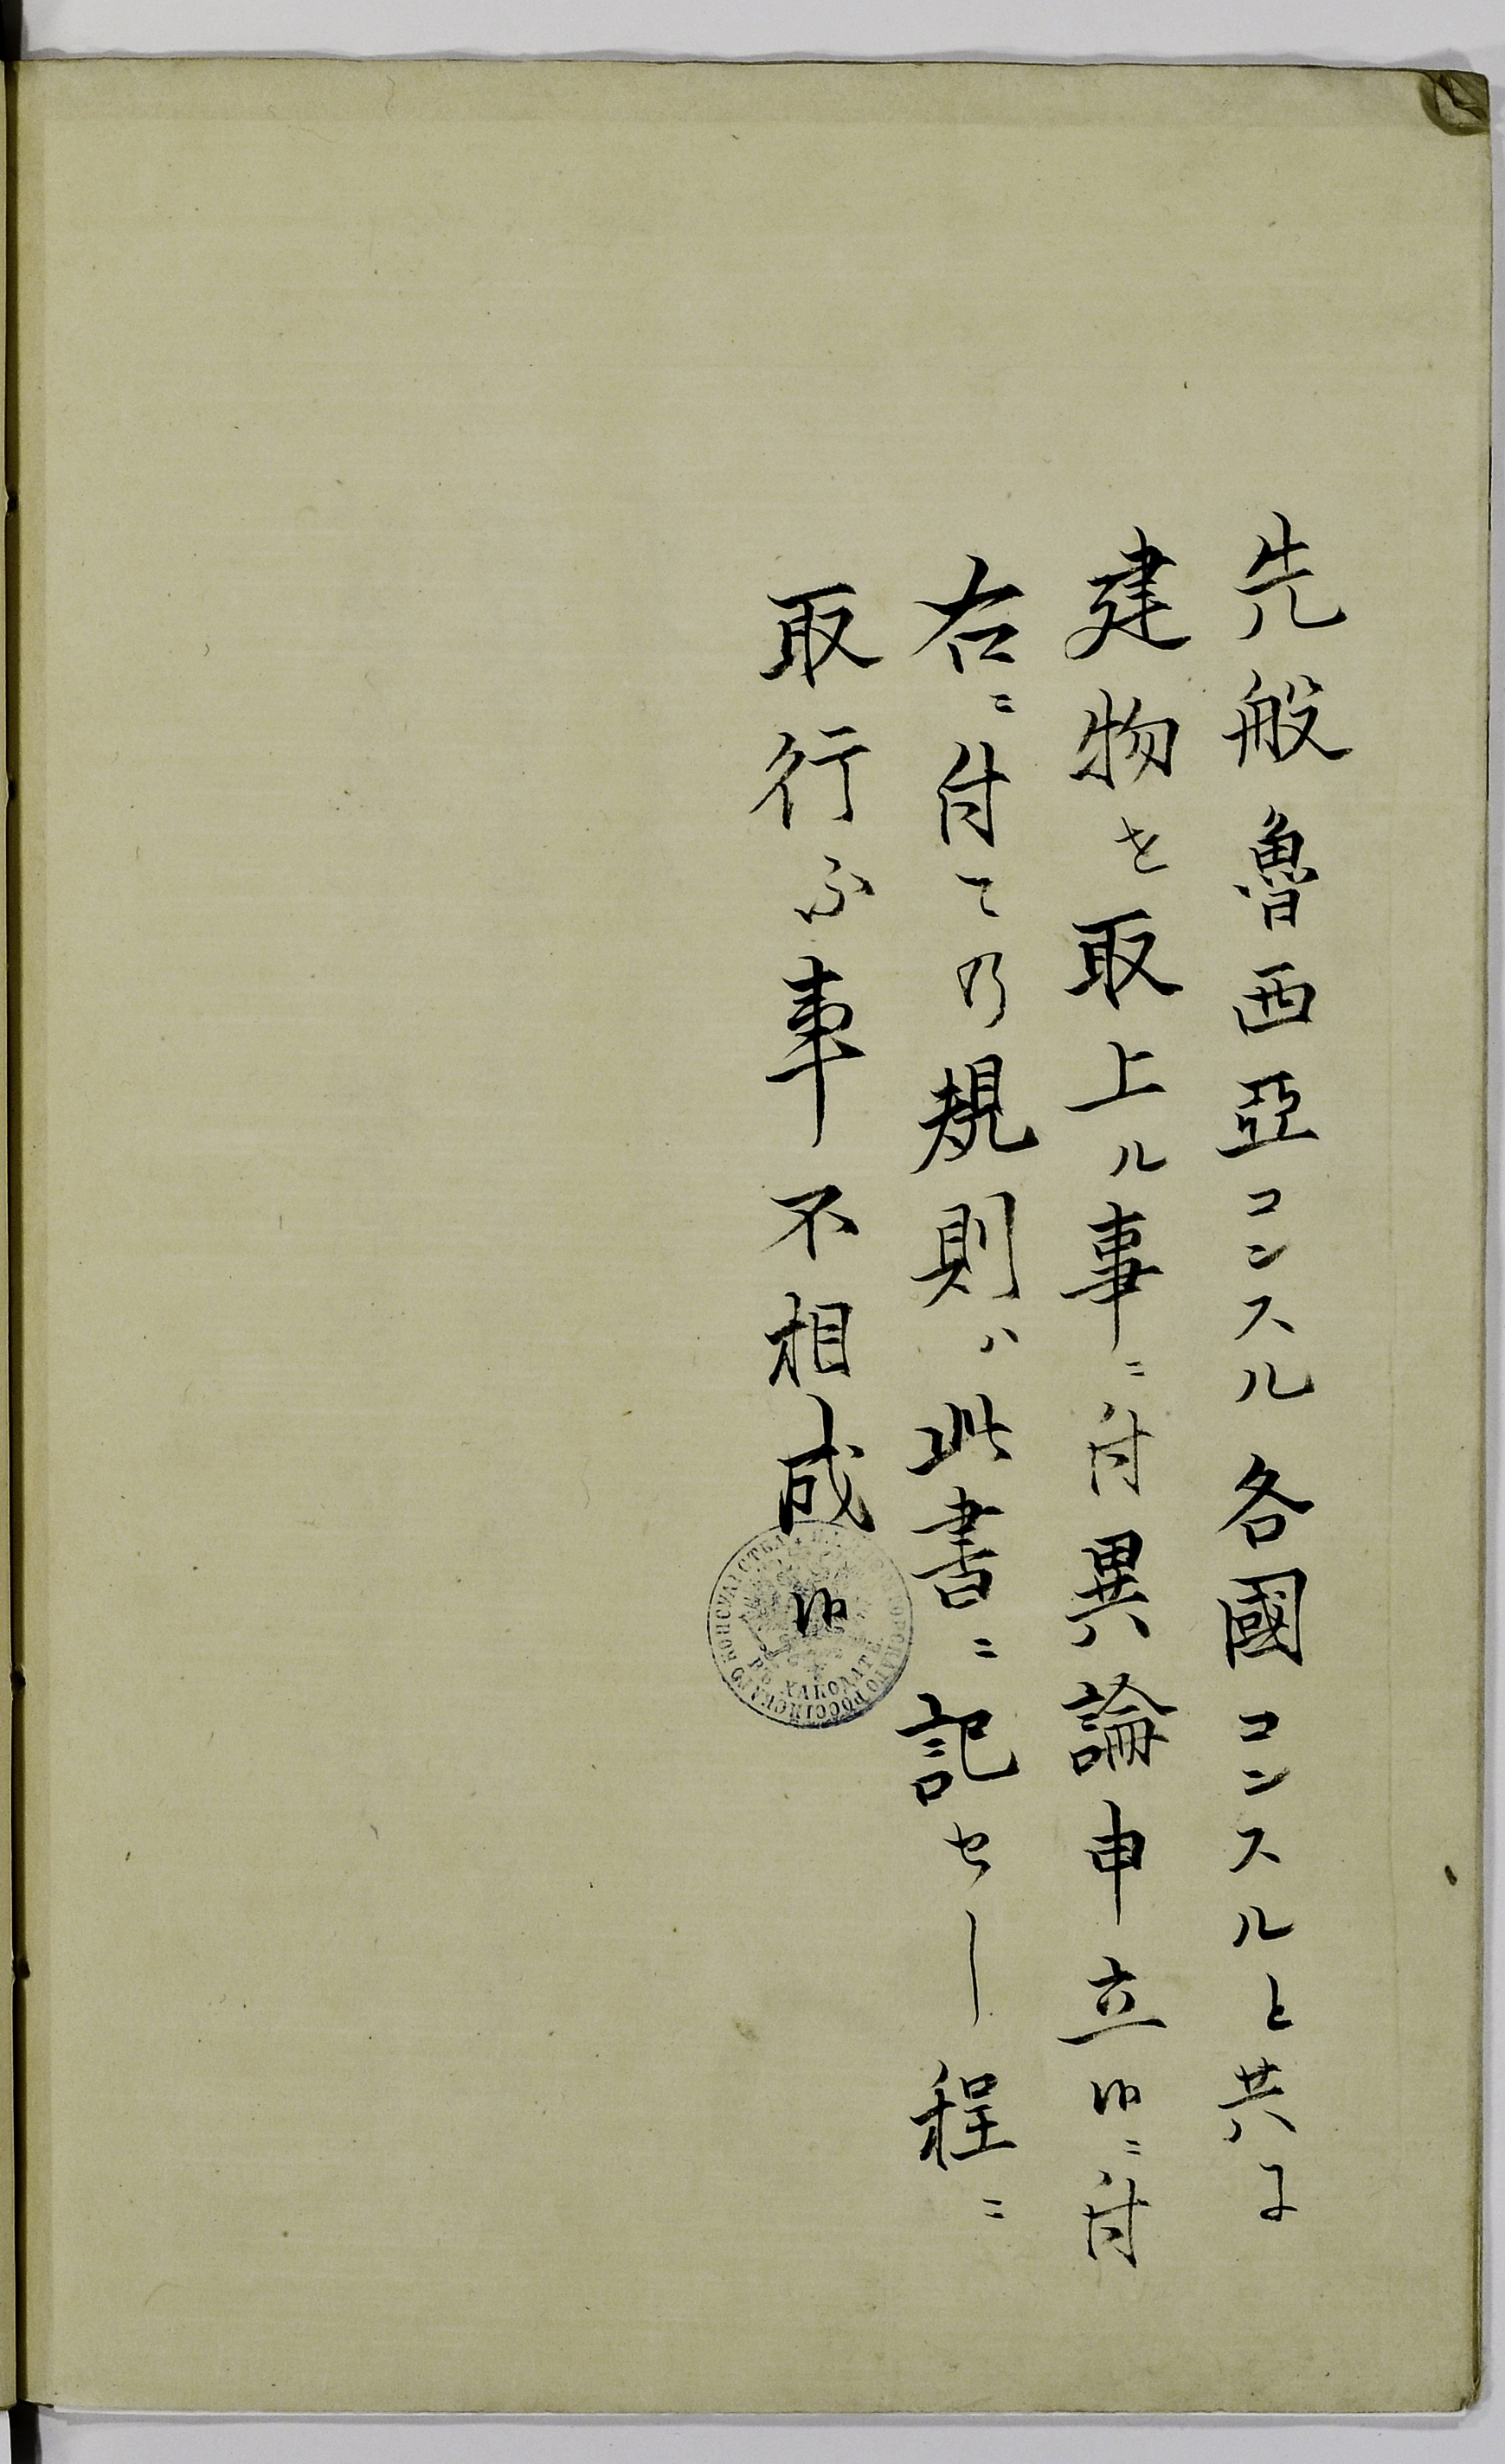 先般魯西亞コンスル各國コンスルと共に
建物を取上ル事ニ付異論申立候ニ付
右ニ付ての規則ハ此書ニ記セし程ニ
取行ふ事不相成候
ИМПЕРАТОРСКАГО РОССІЙСКАГО КОНСУЛЬСТВА
ВЪ ХАКОДАТЕ